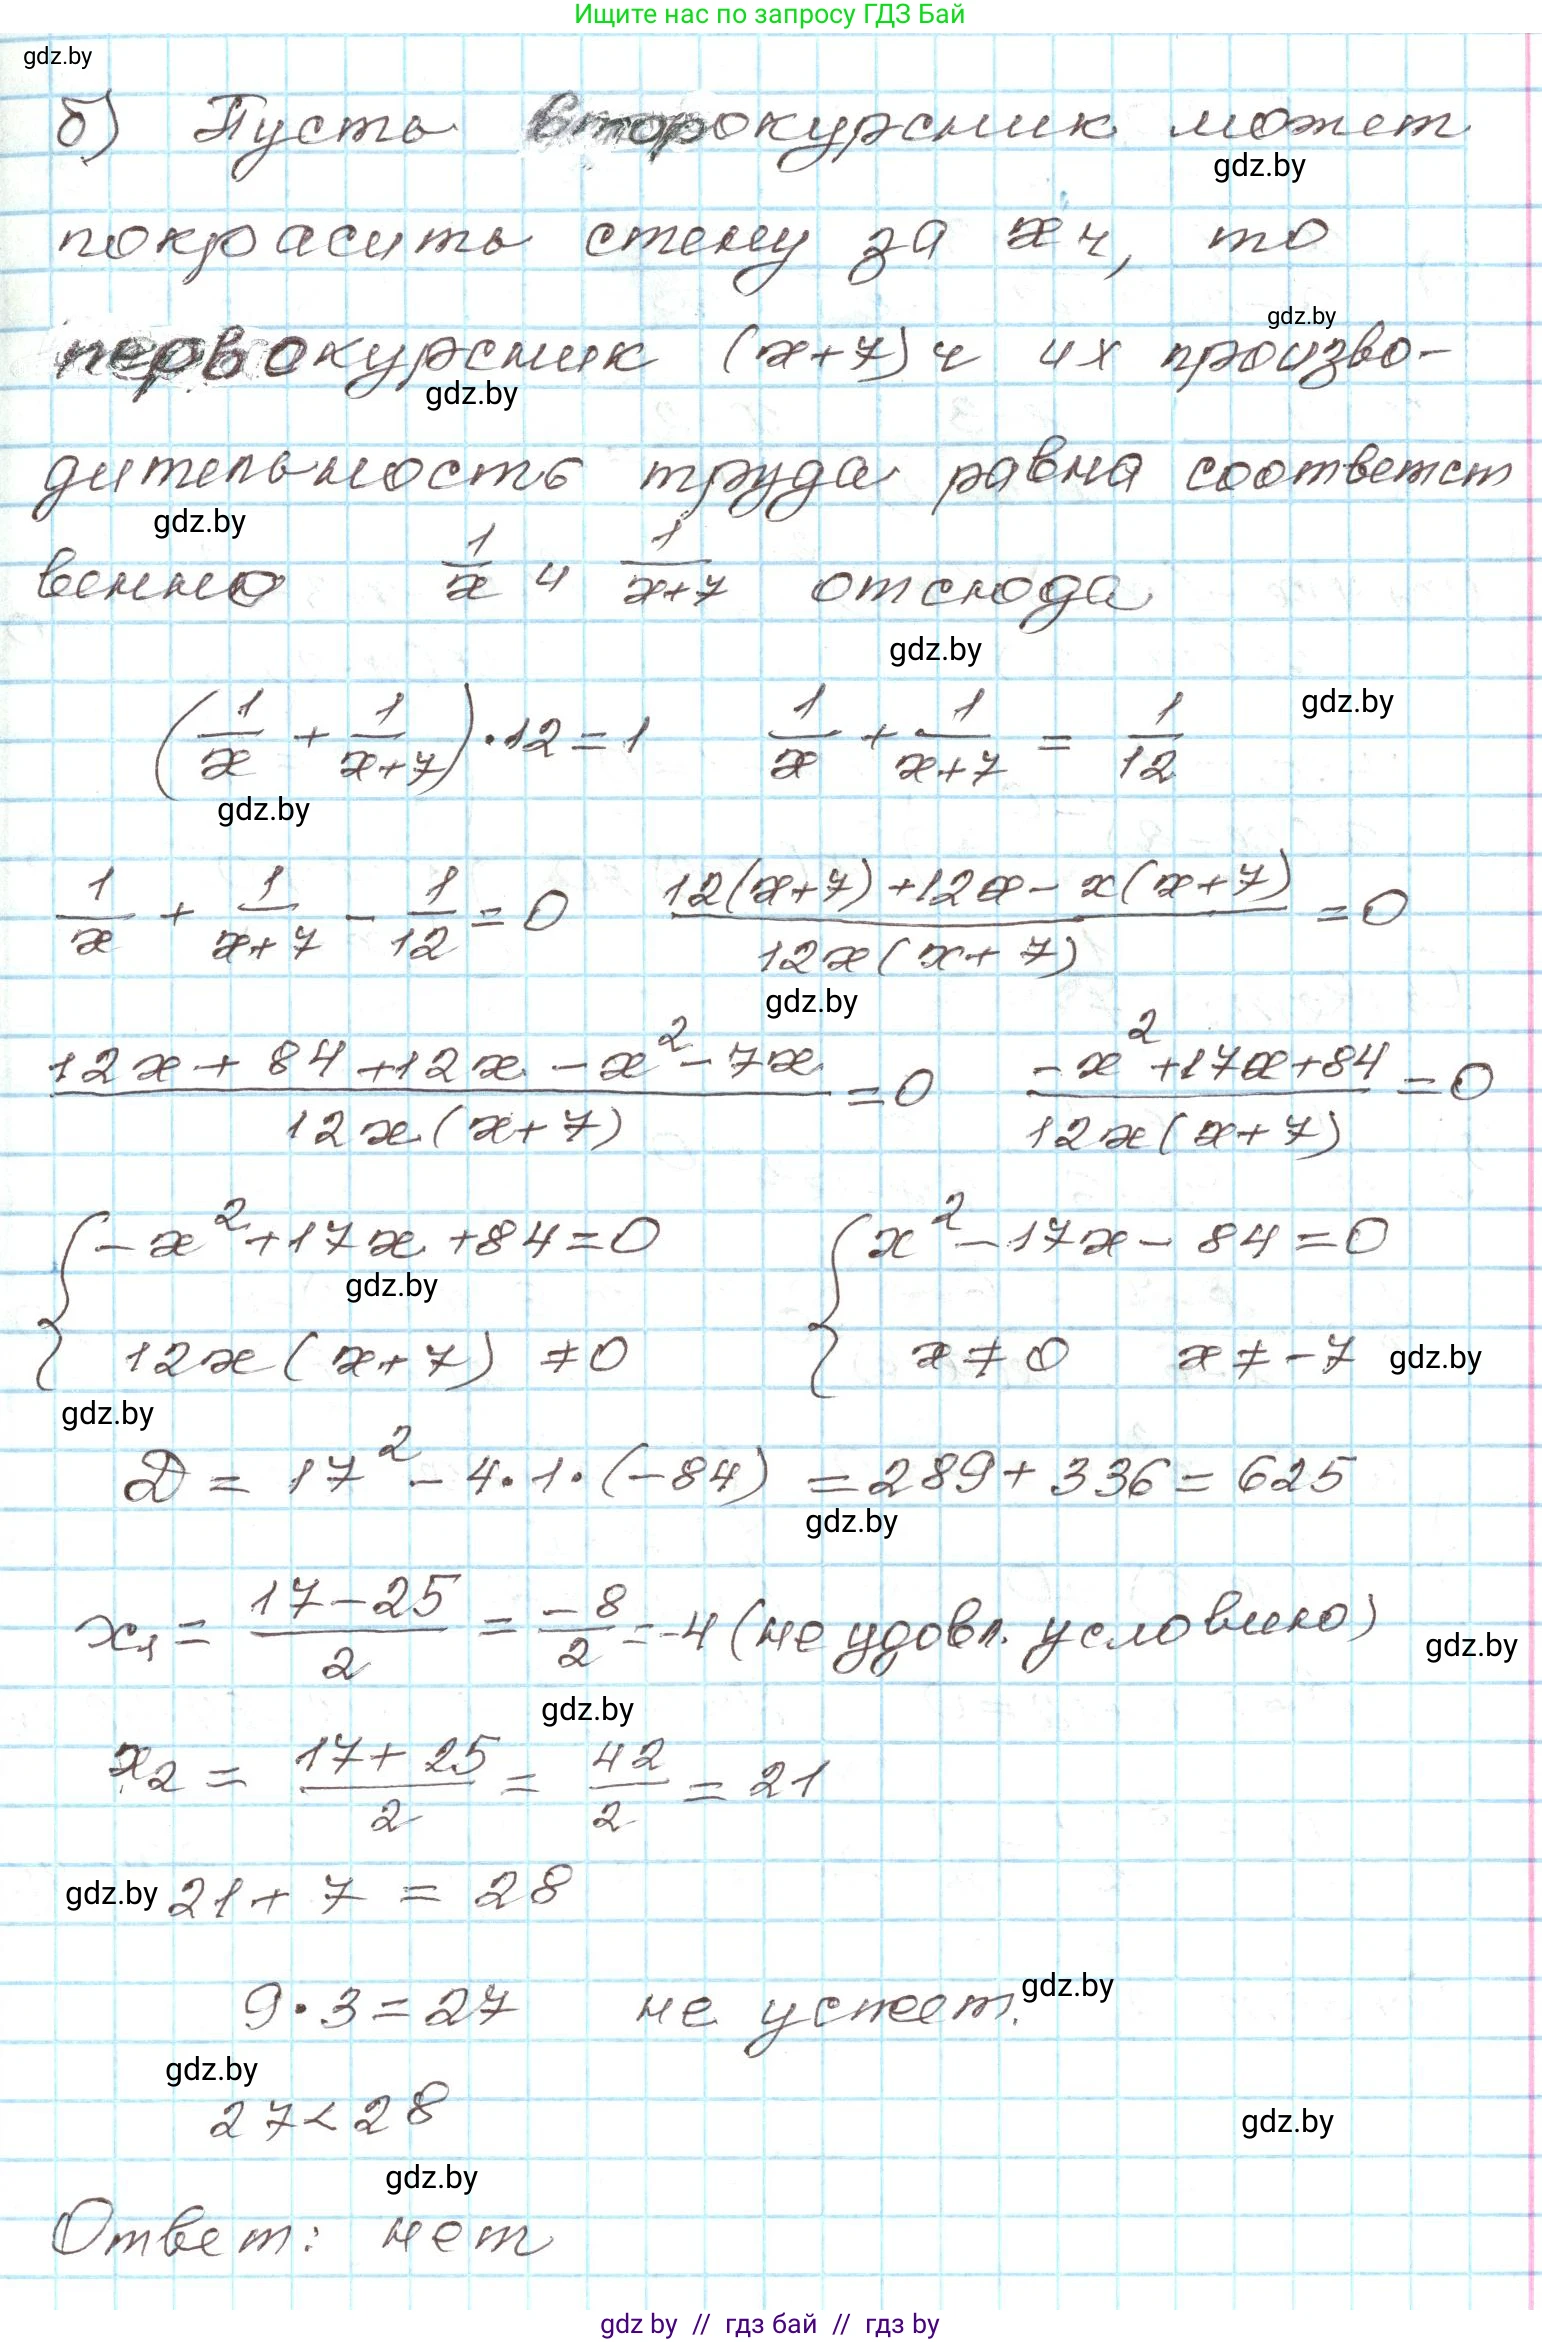 Ищите нас по запросу ГДЗ Бай
gdz.by
б) Пусть второкурсник может
gdz.by
покрасить стену за x ч, то
gdz.by
первокурсник (x+7) ч их произво-
gdz.by
дительность труда равна соответст
gdz.by
венно 1/x и 1/(x+7) отсюда
gdz.by
(1/x + 1/(x+7)) · 12 = 1    1/x + 1/(x+7) = 1/12
gdz.by
gdz.by
1/x + 1/(x+7) - 1/12 = 0    (12(x+7) + 12x - x(x+7))/(12x(x+7)) = 0
gdz.by
(12x + 84 + 12x - x² - 7x)/(12x(x+7)) = 0    (-x² + 17x + 84)/(12x(x+7)) = 0
{ -x² + 17x + 84 = 0    { x² - 17x - 84 = 0
gdz.by
12x(x+7) ≠ 0    x ≠ 0    x ≠ -7
gdz.by
gdz.by
D = 17² - 4·1·(-84) = 289 + 336 = 625
gdz.by
x₁ = (17-25)/2 = -8/2 = -4 (не удовл. условию)
gdz.by
gdz.by
x₂ = (17+25)/2 = 42/2 = 21
gdz.by 21 + 7 = 28
9·3 = 27    не успеет.
gdz.by
gdz.by
27 < 28
gdz.by
gdz.by
Ответ: нет
gdz by // гдз бай // гдз by